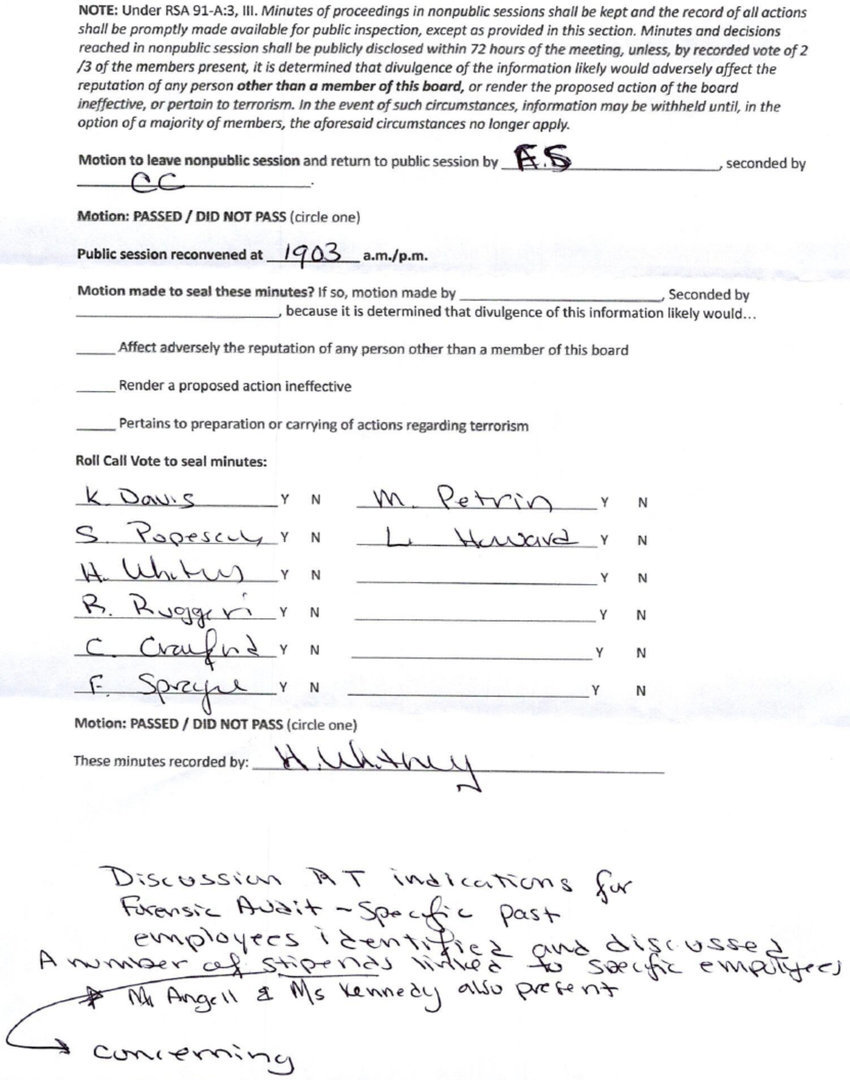 NOTE: Under RSA 91-A:3, III. Minutes of proceedings in nonpublic sessions shall be kept and the record of all actions
shall be promptly made available for public inspection, except as provided in this section. Minutes and decisions
reached in nonpublic session shall be publicly disclosed within 72 hours of the meeting, unless, by recorded vote of 2
/3 of the members present, it is determined that divulgence of the information likely would adversely affect the
reputation of any person other than a member of this board, or render the proposed action of the board
ineffective, or pertain to terrorism. In the event of such circumstances, information may be withheld until, in the
option of a majority of members, the aforesaid circumstances no longer apply.
Motion to leave nonpublic session and return to public session by F.S, seconded by
CC.
Motion: PASSED / DID NOT PASS (circle one)
Public session reconvened at 1903 a.m./p.m.
Motion made to seal these minutes? If so, motion made by ____, Seconded by
____, because it is determined that divulgence of this information likely would...
____ Affect adversely the reputation of any person other than a member of this board
____ Render a proposed action ineffective
____ Pertains to preparation or carrying of actions regarding terrorism
Roll Call Vote to seal minutes:
K. Davis Y N M. Petrin Y N
S. Popescu Y N L. Howard Y N
H. Whitney Y N ____ Y N
R. Ruggeri Y N ____ Y N
C. Crawford Y N ____ Y N
F. Sprague Y N ____ Y N
Motion: PASSED / DID NOT PASS (circle one)
These minutes recorded by: H. Whitney
Discussion RT indications for
Forensic Audit - Specific past
employees identified and discussed
A number of stipends linked to specific employees
* Mr Angell & Ms Kennedy also present
concerning